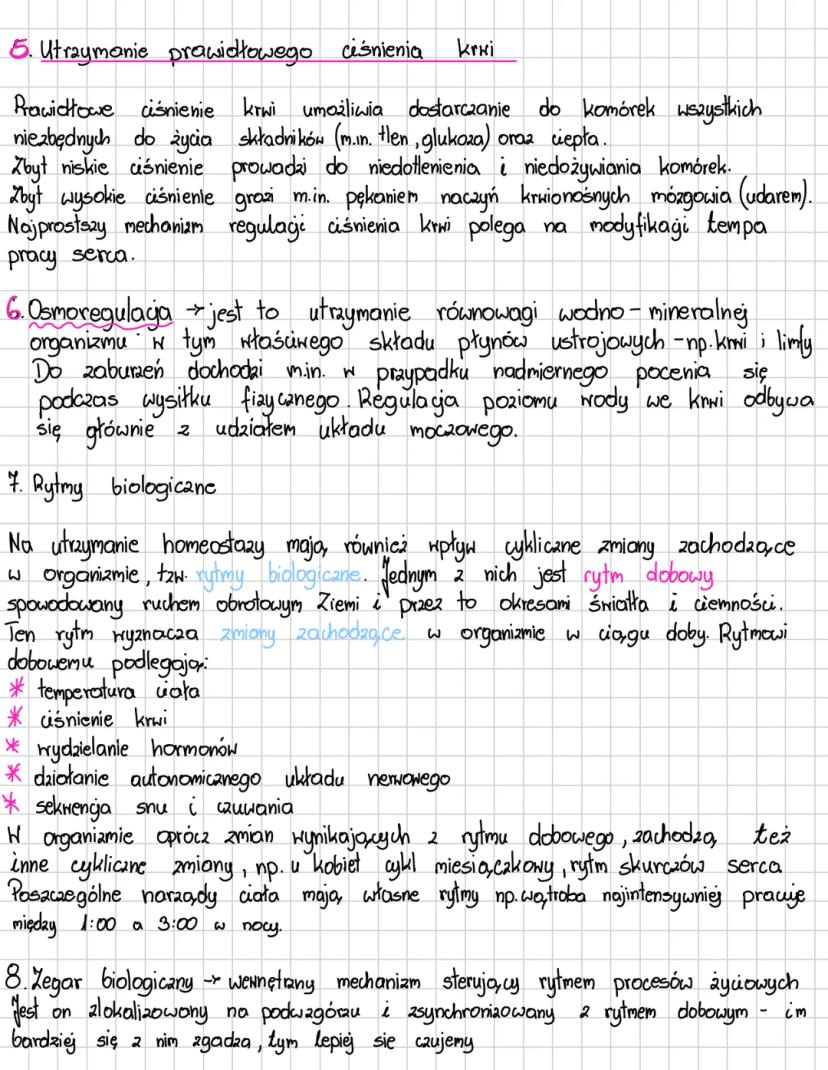 5. Utrzymanie prawidłowego ciśnienia krwi
Prawidłowe ciśnienie krwi umożliwia dostarczanie do komórek wszystkich
niezbędnych do życia składników (m.in. tlen, glukoza) oraz ciepła.
Zbyt niskie ciśnienie prowadzi do niedotlenienia i niedożywiania komórek.
Zbyt wysokie ciśnienie grozi m.in. pękaniem naczyń krwionośnych mózgowia (udarem).
Najprostszy mechanizm regulacji ciśnienia krwi polega na modyfikacji tempa
pracy serca.
6. Osmoregulacja → jest to utrzymanie równowagi wodno-mineralnej
organizmu w tym właściwego składu płynów ustrojowych - np. krwi i limfy
Do zaburzeń dochodzi m.in. w przypadku nadmiernego pocenia się
podczas wysiłku fizycznego. Regulacja poziomu wody we krwi odbywa
się głównie z udziałem układu moczowego.
7. Rytmy biologiczne
Na utrzymanie homeostazy mają również wpływ cykliczne zmiany zachodzące
w organizmie, tzw. rytmy biologiczne. Jednym z nich jest rytm dobowy
spowodowany ruchem obrotowym Ziemi i przez to okresami światła i ciemności.
Ten rytm wyznacza zmiany zachodzące w organizmie w ciągu doby. Rytmowi
dobowemu podlegają:
* temperatura ciała
* ciśnienie krwi
* wydzielanie hormonów
* działanie autonomicznego układu nerwowego
* sekwencja snu i czuwania
W organizmie oprócz zmian wynikających z rytmu dobowego, zachodzą też
inne cykliczne zmiany, np. u kobiet cykl miesiączkowy, rytm skurczów serca
Poszczególne narządy ciała mają własne rytmy np. wątroba najintensywniej pracuje
między 1:00 a 3:00 w nocy.
8. Zegar biologiczny → wewnętrzny mechanizm sterujący rytmem procesów życiowych
Jest on zlokalizowany na podwzgórzu i zsynchronizowany z rytmem dobowym - im
bardziej się z nim zgadza, tym lepiej sie czujemy